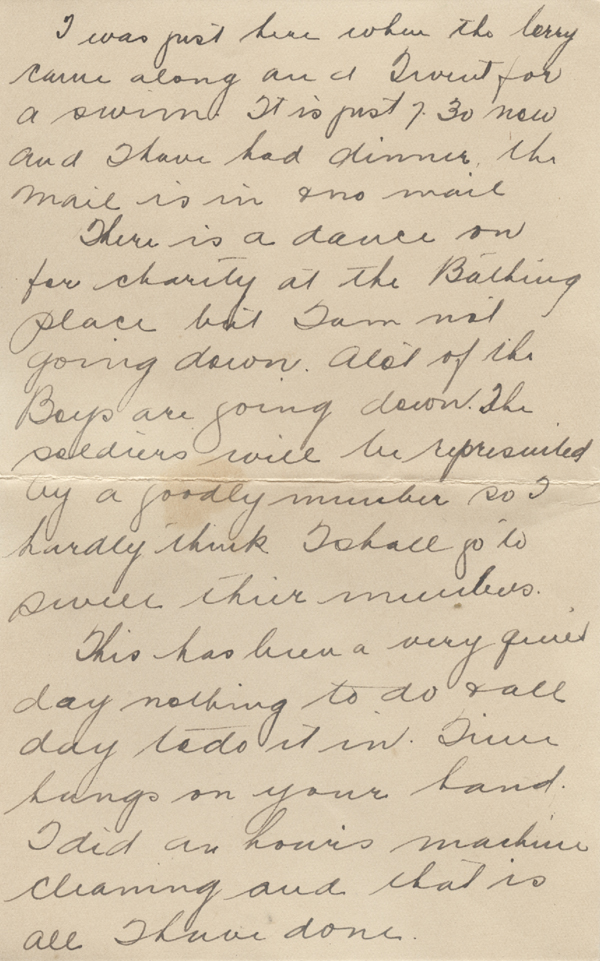 I was just here when the lorry
came along and I went for
a swim. It is just 7.30 now
and I have had dinner. the
mail is in & no mail
There is a dance on
for charity at the Bathing
place but I am not
going down. Alot of the
Boys are going down. The
soldiers will be represented
by a goodly number so I
hardly think I shall go to
swell thier numbers.
This has been a very quiet
day nothing to do & all
day to do it in. Time
hangs on your hand.
I did an hours machine
cleaning and that is
all I have done.